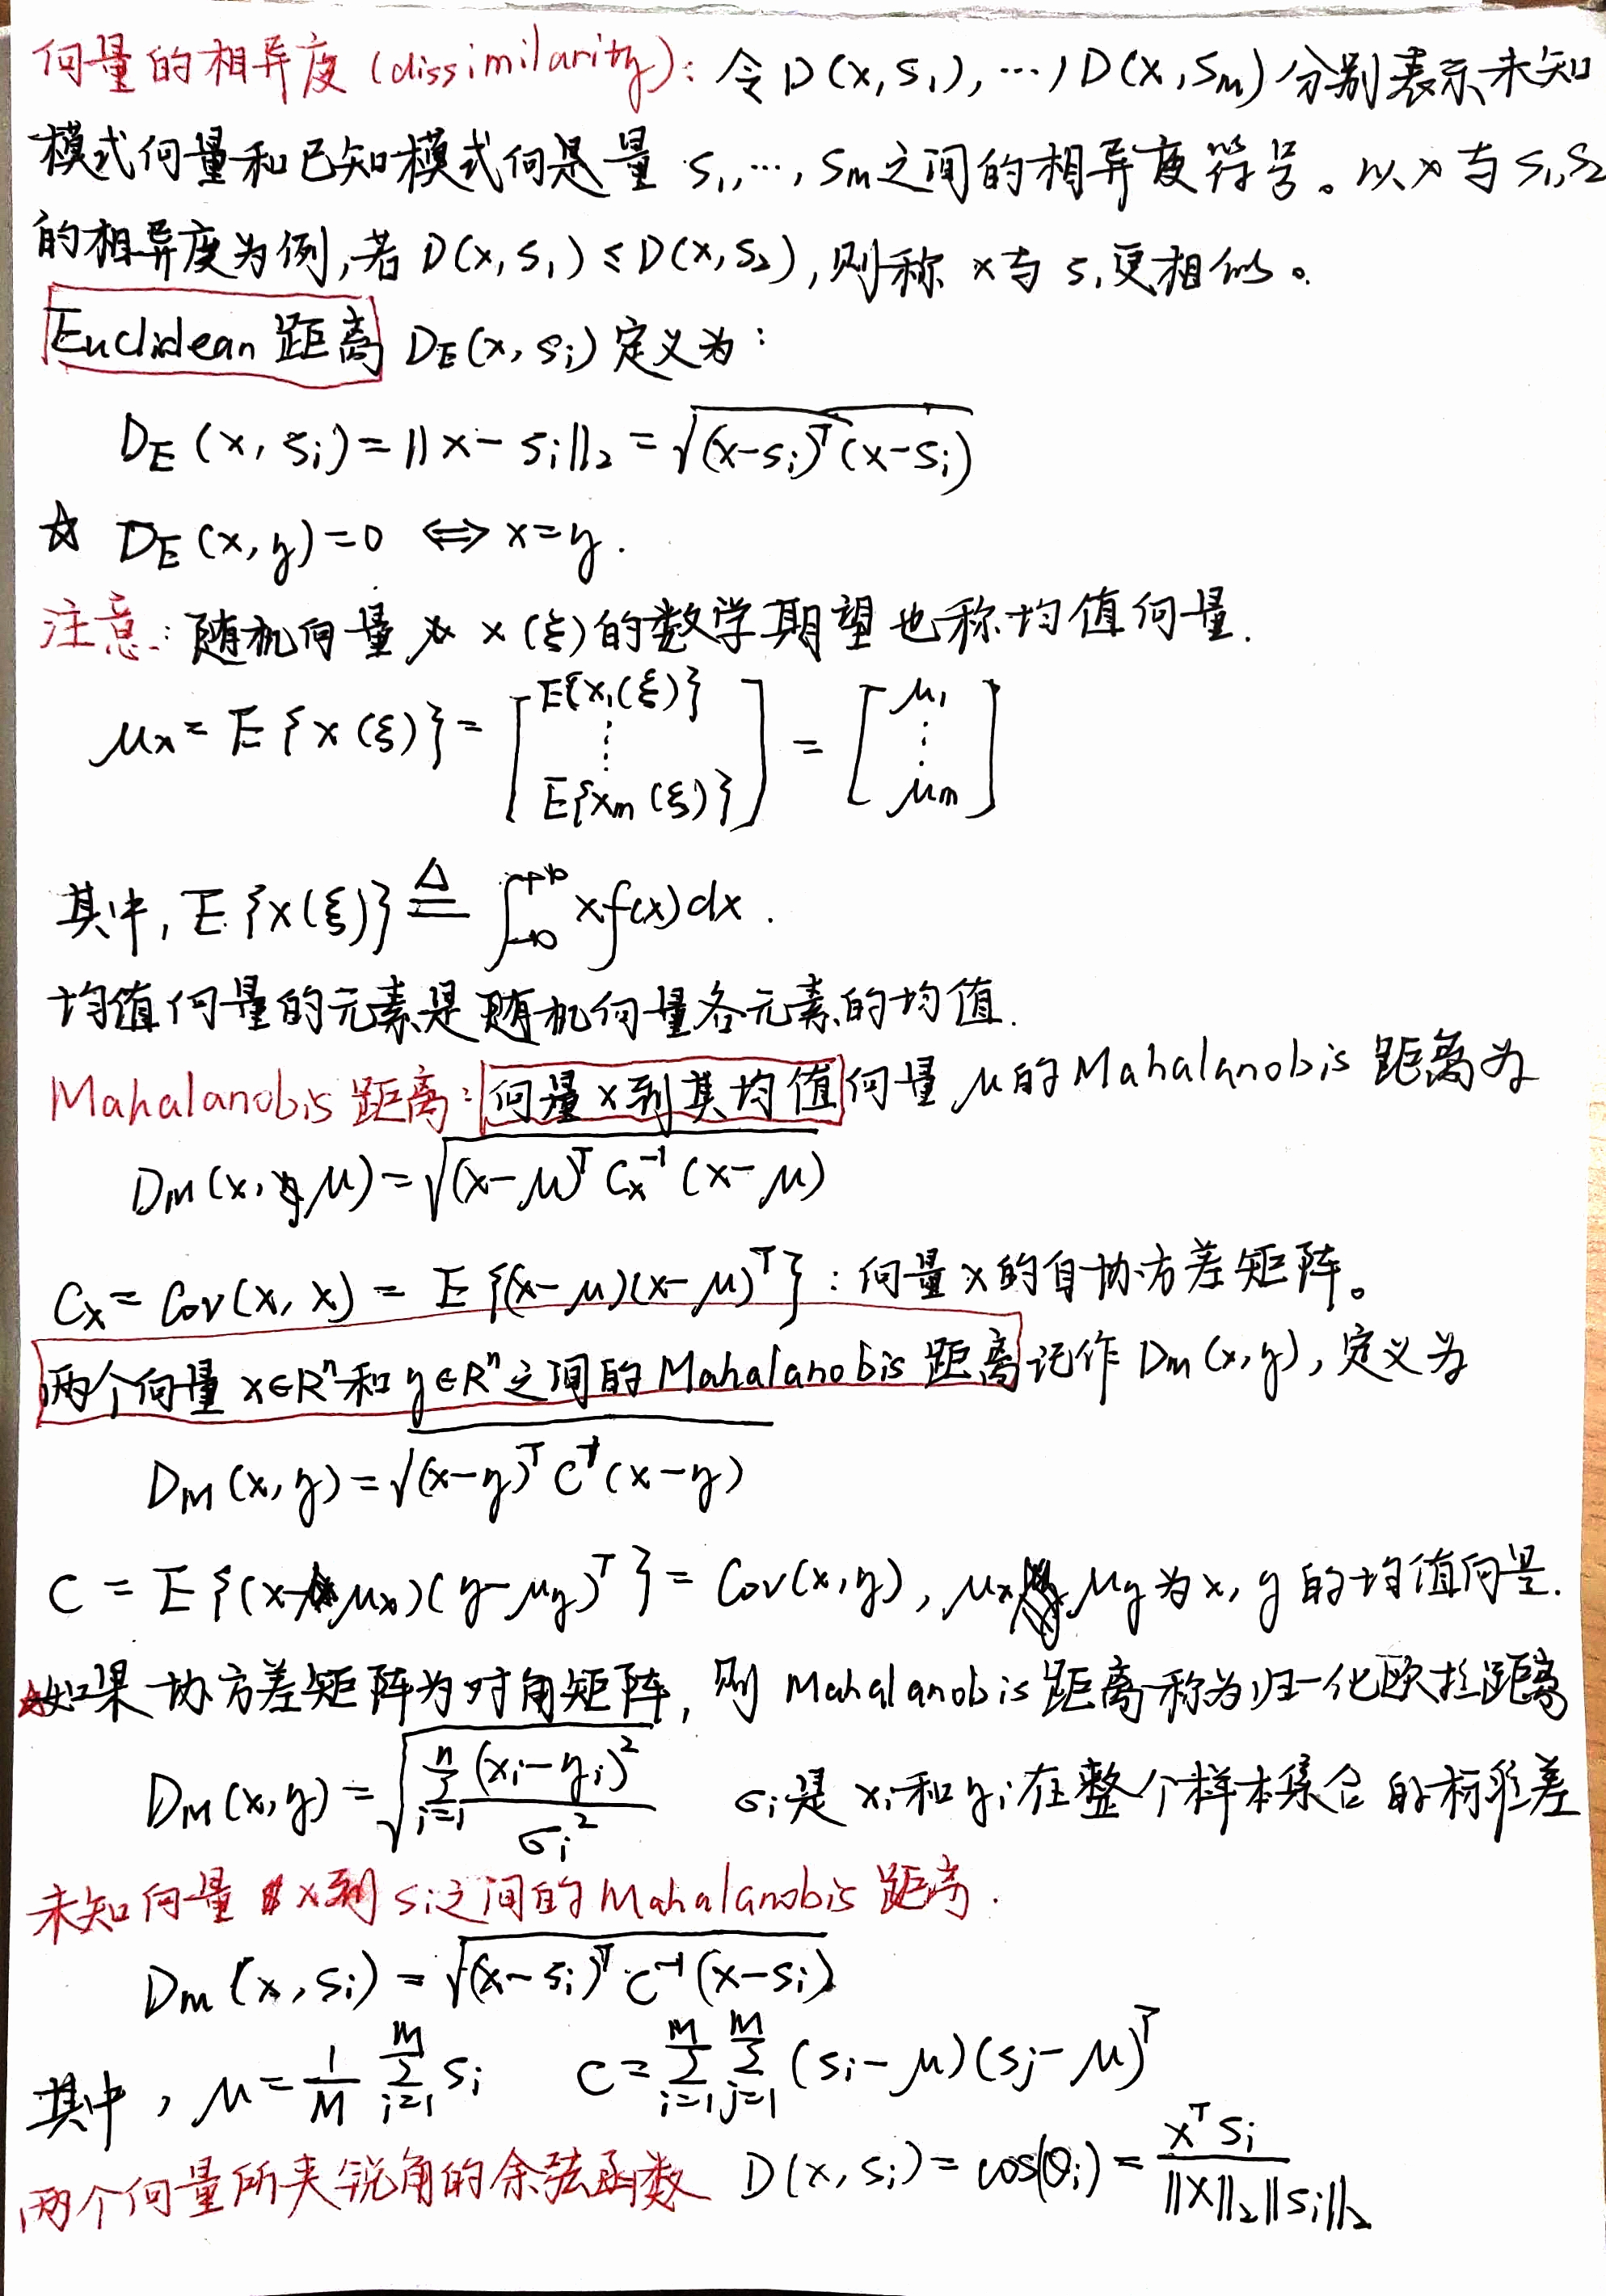 向量的相异度 (dissimilarity): 令 D(x, s₁), …, D(x, sₘ) 分别表示未知
模式向量和已知模式向量 s₁, …, sₘ 之间的相异度符号。以 x 与 s₁, s₂
的相异度为例, 若 D(x, s₁) ≤ D(x, s₂), 则称 x 与 s₁ 更相似。
Euclidean 距离 D_E(x, sᵢ) 定义为:
D_E(x, sᵢ) = ||x - sᵢ||₂ = √((x-sᵢ)ᵀ(x-sᵢ))
☆ D_E(x, y) = 0 ⟺ x = y.
注意: 随机向量 x(ξ) 的数学期望也称均值向量.
μₓ = E{x(ξ)} = [E{x₁(ξ)} ⋮ E{xₘ(ξ)}] = [μ₁ ⋮ μₘ]
其中, E{x(ξ)} ≜ ∫₋∞⁺∞ x f(x) dx.
均值向量的元素是随机向量各元素的均值.
Mahalanobis 距离: 向量 x 到其均值向量 μ 的 Mahalanobis 距离为
Dₘ(x, μ) = √((x-μ)ᵀ Cₓ⁻¹ (x-μ))
Cₓ = Cov(x, x) = E{(x-μ)(x-μ)ᵀ}: 向量 x 的自协方差矩阵。
两个向量 x∈Rⁿ 和 y∈Rⁿ 之间的 Mahalanobis 距离记作 Dₘ(x, y), 定义为
D_M(x, y) = √((x-y)ᵀ C⁻¹ (x-y))
C = E{(x-μₓ)(y-μ_y)ᵀ} = Cov(x, y), μₓ, μ_y 为 x, y 的均值向量.
☆如果协方差矩阵为对角矩阵, 则 Mahalanobis 距离称为归一化欧拉距离
D_M(x, y) = √(∑ᵢ₌₁ⁿ (xᵢ-yᵢ)² / σᵢ²) σᵢ是 xᵢ 和 yᵢ 在整个样本集合的标准差
未知向量 x 到 sᵢ 之间的 Mahalanobis 距离.
Dₘ(x, sᵢ) = √((x-sᵢ)ᵀ C⁻¹ (x-sᵢ))
其中, μ = 1/M ∑ᵢ₌₁ᴹ sᵢ C = ∑ᵢ₌₁ᴹ ∑ⱼ₌₁ᴹ (sᵢ-μ)(sⱼ-μ)ᵀ
两个向量所夹锐角的余弦函数 D(x, sᵢ) = cos(θᵢ) = xᵀsᵢ / (||x||₂||sᵢ||₂)